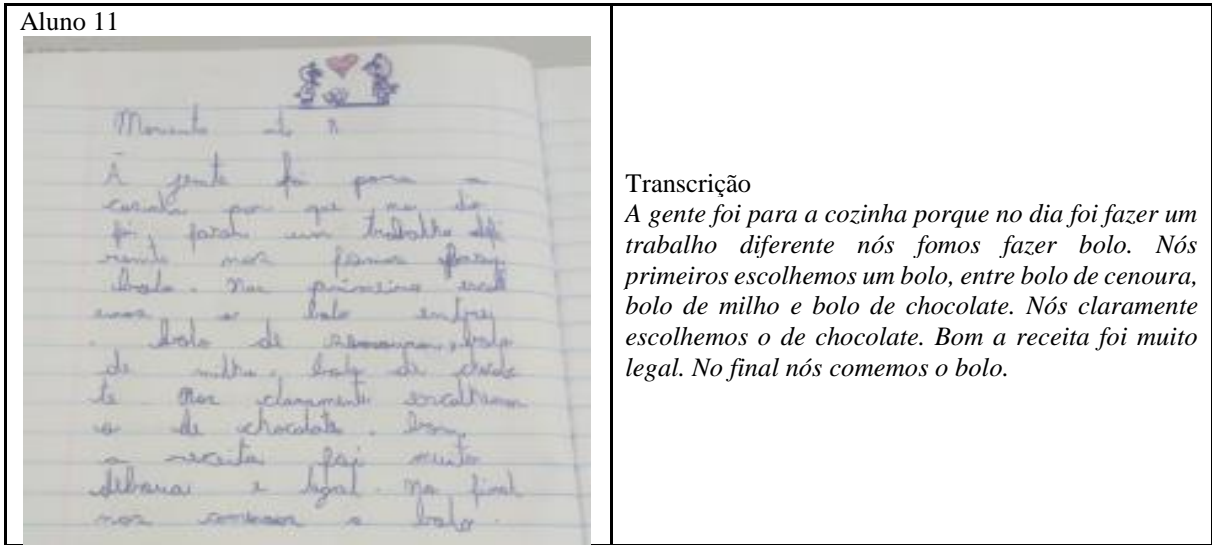 Aluno 11
Momento
A gente foi para a
cozinha por que no dia
foi, um trabalho
nos fomos
bolo. Nos primeiro
o bolo
bolo de bolo
de milho, bolo de
te Nos claramente
o de chocolate. bom,
a receita foi muito
e legal. No final
nos o bolo.
Transcrição
A gente foi para a cozinha porque no dia foi fazer um
trabalho diferente nós fomos fazer bolo. Nós
primeiros escolhemos um bolo, entre bolo de cenoura,
bolo de milho e bolo de chocolate. Nós claramente
escolhemos o de chocolate. Bom a receita foi muito
legal. No final nós comemos o bolo.